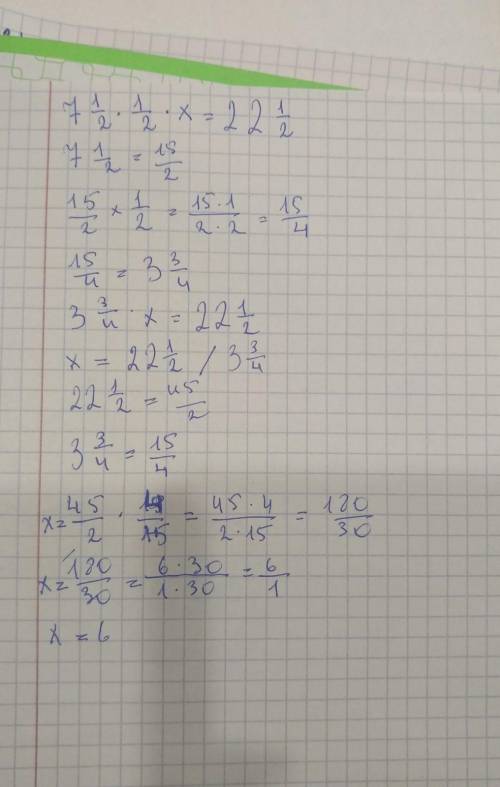 7 1/2 · 1/2 · x = 22 1/2
7 1/2 = 15/2
15/2 × 1/2 = 15·1/2·2 = 15/4
15/4 = 3 3/4
3 3/4 · x = 22 1/2
x = 22 1/2 / 3 3/4
22 1/2 = 45/2
3 3/4 = 15/4
x = 45/2 · 4/15 = 45·4/2·15 = 180/30
x = 180/30 = 6·30/1·30 = 6/1
x = 6